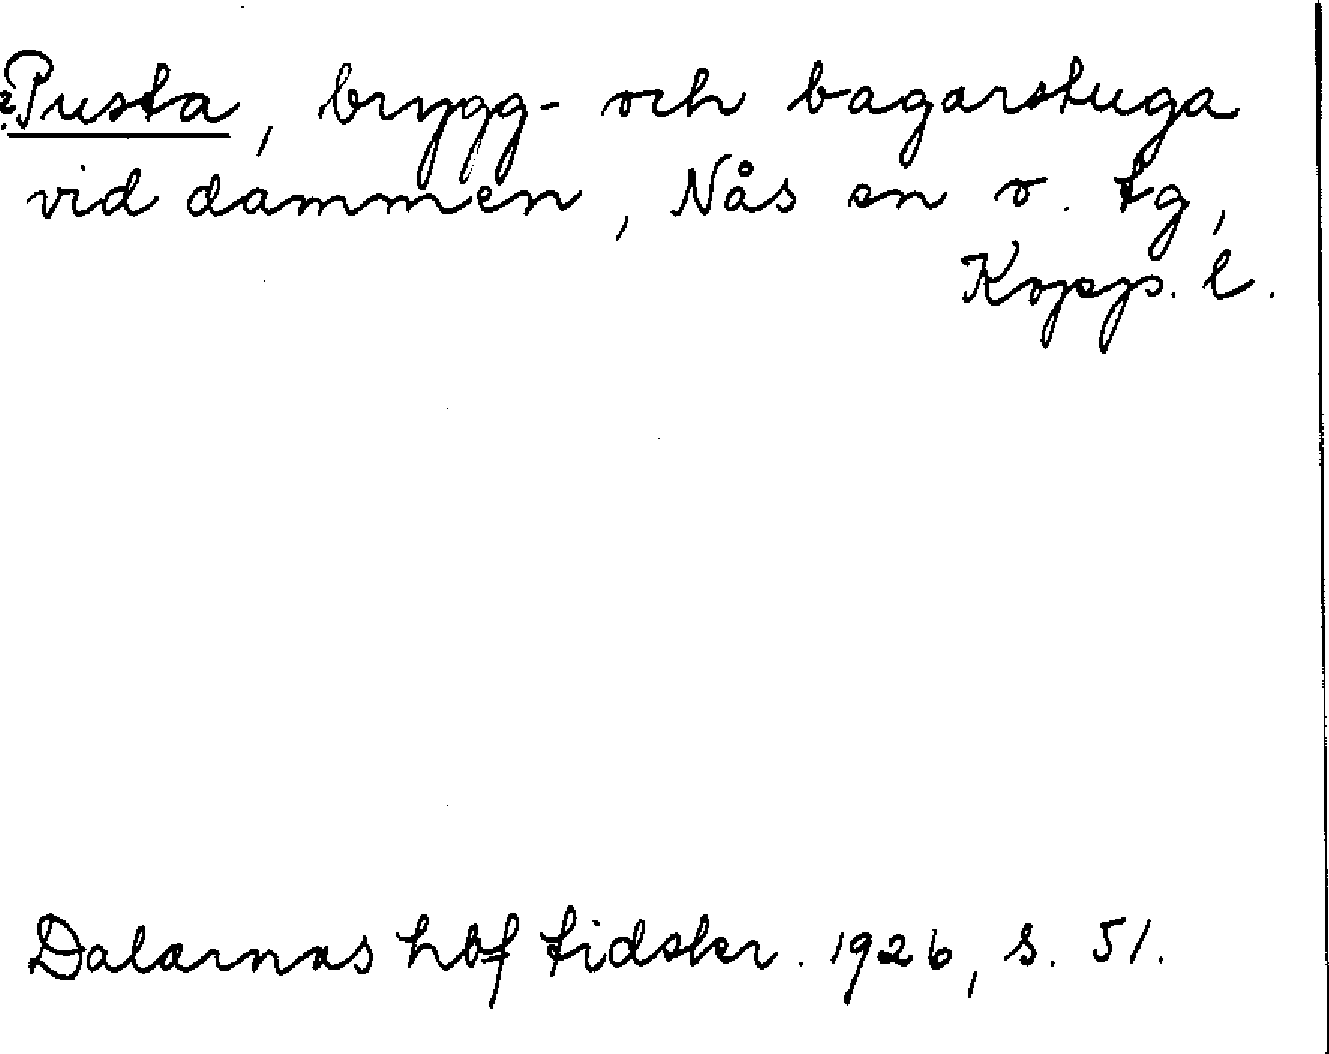 ?Pusta, brygg- och bagarstuga
vid dammen, Nås sn o. tg,
Kopp. l.
Dalarnas hbf tidskr. 1926, s. 51.